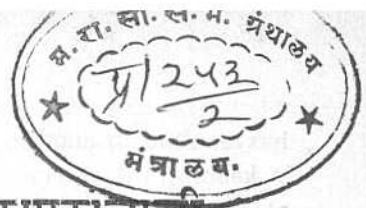 म. रा. सा. सं. म. ग्रंथालय
प्र/243
2
मंत्रालय.